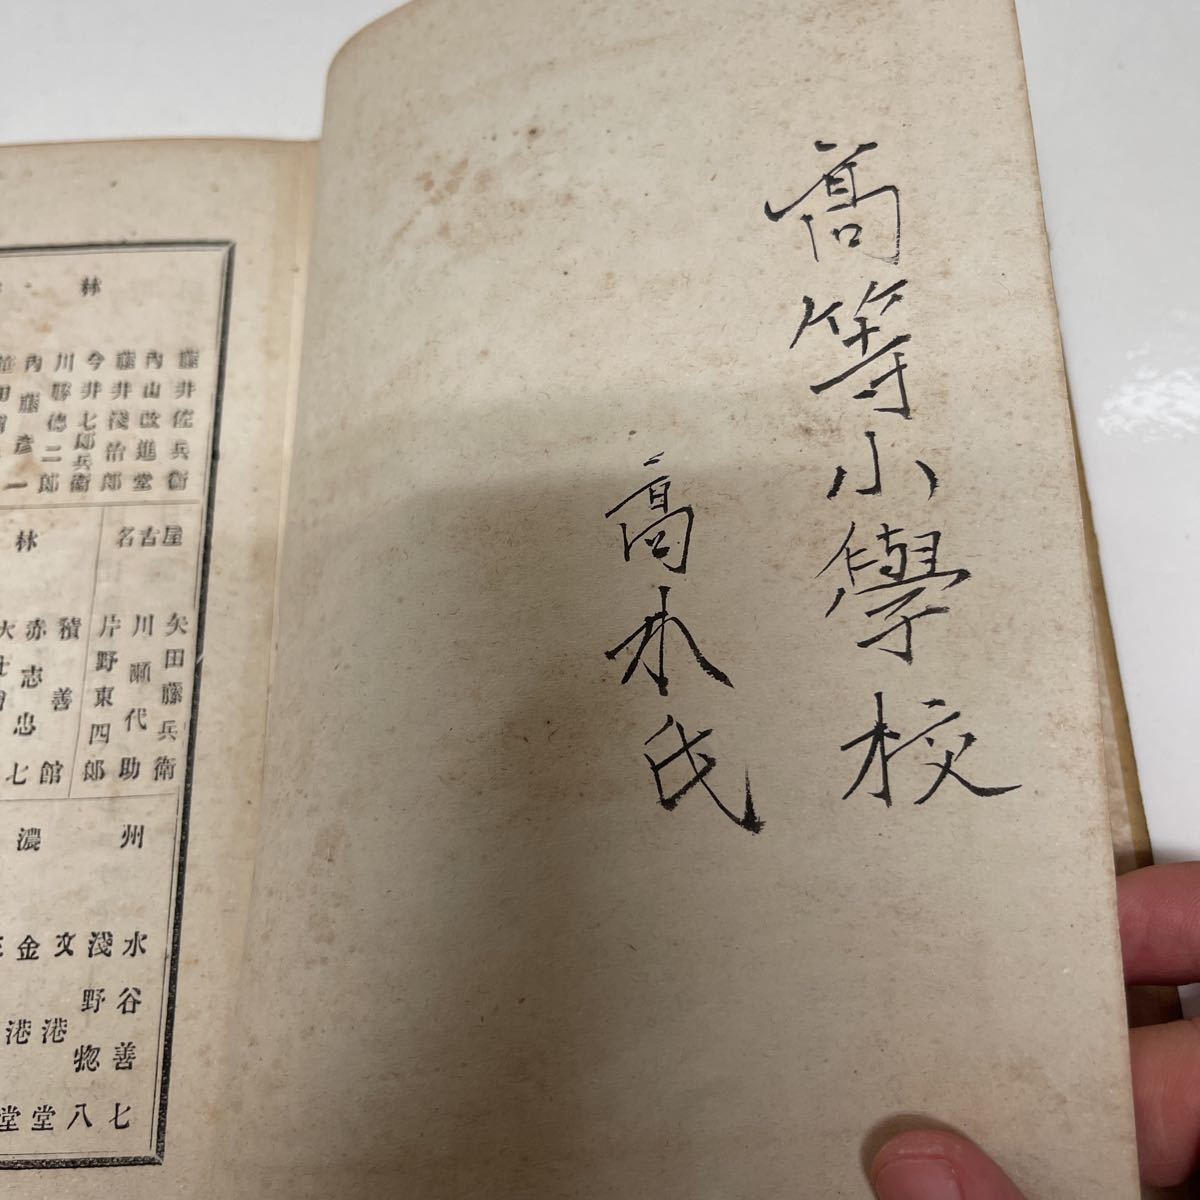 髙等小學校
髙木氏
林
藤井佐兵衞
內山改進堂
藤井淺治郎
今井七郎兵衞
川勝德二郎
內藤彥一
名古屋
矢田藤兵衞
川瀨代助
片野東四郎
林
積善館
赤志忠七
州
濃
水谷善七
淺野惣八
文港堂
金港堂